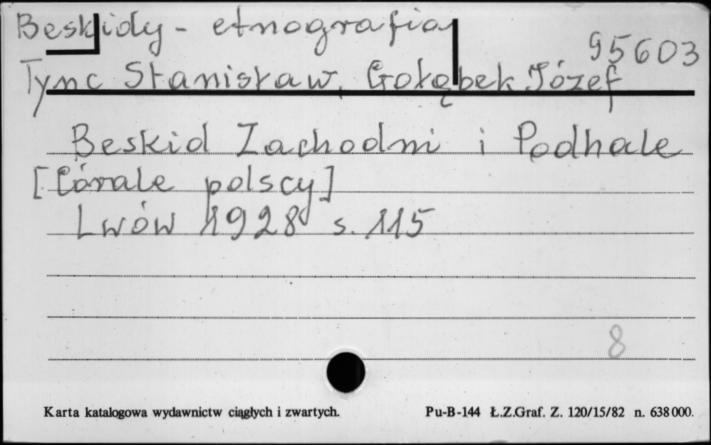 Beskidy - etnografia
95603
Tync Stanisław, Gołąbek Józef
Beskid Zachodni i Podhale
[Górale polscy]
Lwów 1928 s. 115
8
Karta katalogowa wydawnictw ciągłych i zwartych. Pu-B-144 Ł.Z.Graf. Z. 120/15/82 n. 638000.